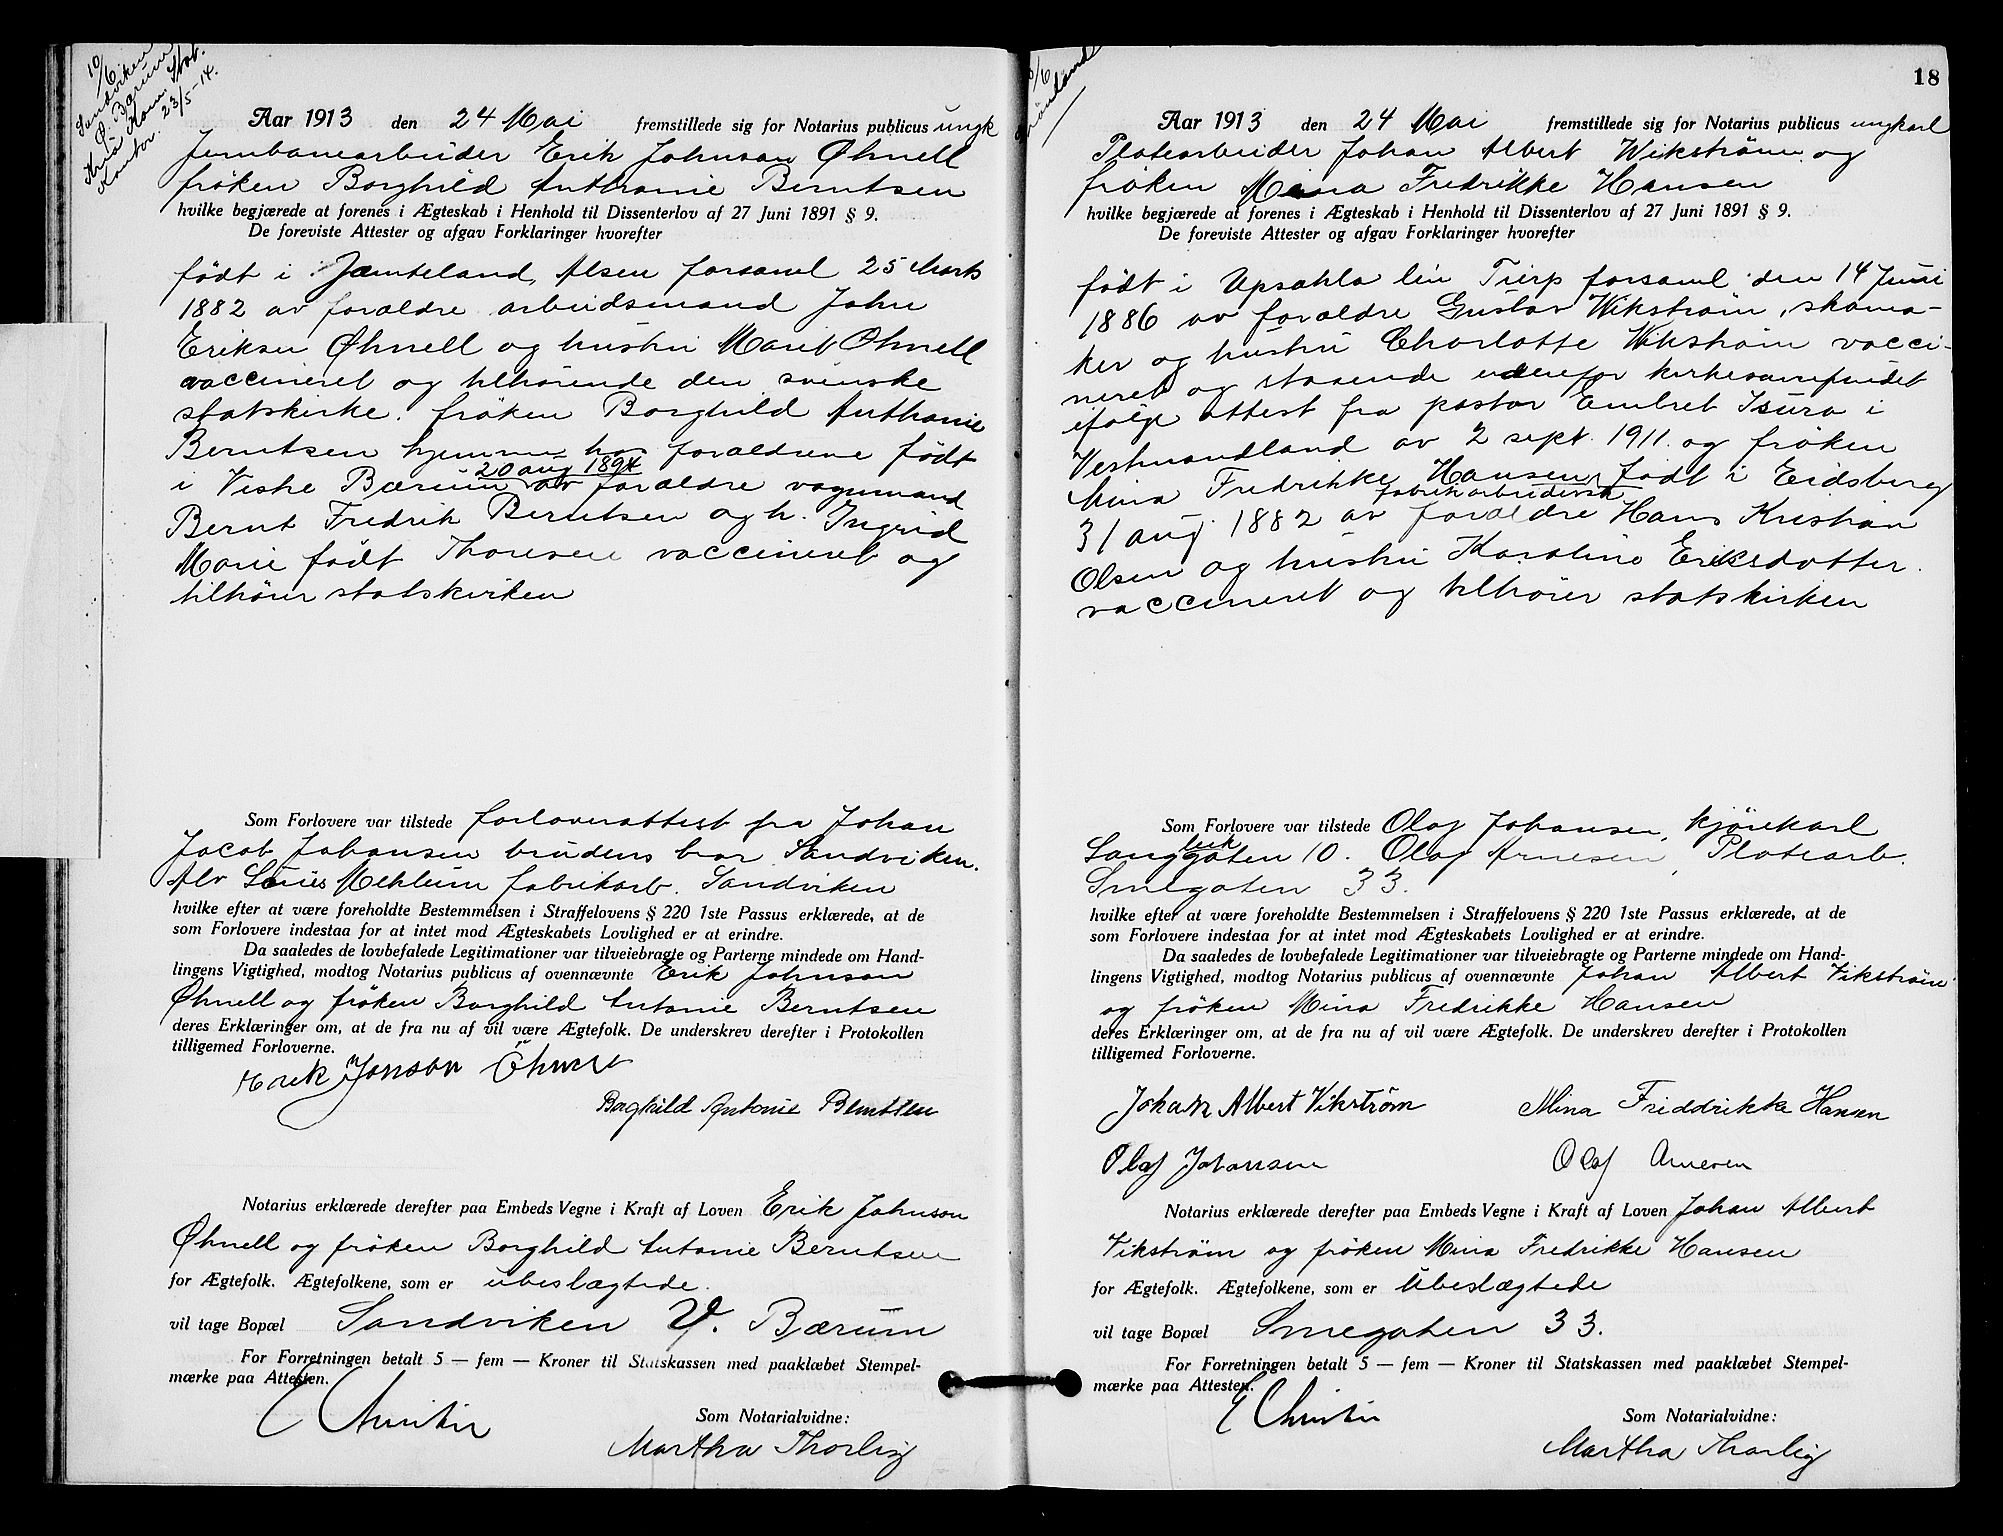 10/6
Sandviken
Ø. Bærum
Kria Kom. Stat.
Kontor. 23/5-14.
Aar 1913 den 24 Mai fremstillede sig for Notarius publicus ungk
Jernbanearbeider Erik Johnson Øhnell
frøken Borghild Anthonie Berntsen
hvilke begjærede at forenes i Ægteskab i Henhold til Dissenterlov af 27 Juni 1891 § 9.
De foreviste Attester og afgav Forklaringer hvorefter
født i Jæmteland, Alsen forsaml 25 Marts
1882 av forældre arbeidsmand John
Eriksen Øhnell og hustru Marit Øhnell
vaccineret og tilhørende den svenske
statskirke. frøken Borghild Anthonie
Berntsen hjemme hos forældrene født
20 aug 1894
i Vestre Bærum av forældre vognmand
Bernt Fredrik Berntsen og h. Ingrid
Marie født Thoresen vaccineret og
tilhører statskirken
Som Forlovere var tilstede forloverattest fra Johan
Jacob Johansen brudens bror Sandviken.
Alv Mehlum fabrikarb. Sandviken
hvilke efter at være foreholdte Bestemmelsen i Straffelovens § 220 1ste Passus erklærede, at de
som Forlovere indestaa for at intet mod Ægteskabets Lovlighed er at erindre.
Da saaledes de lovbefalede Legitimationer var tilveiebragte og Parterne mindede om Hand-
lingens Vigtighed, modtog Notarius publicus af ovennævnte Erik Johnson
Øhnell og frøken Borghild Antonie Berntsen
deres Erklæringer om, at de fra nu af vil være Ægtefolk. De underskrev derefter i Protokollen
tilligemed Forloverne.
Erik Jonson Öhnell
Borghild Antonie Berntsen
Notarius erklærede derefter paa Embeds Vegne i Kraft af Loven Erik Johnson
Øhnell og frøken Borghild Antonie Berntsen
for Ægtefolk. Ægtefolkene, som er ubeslægtede.
vil tage Bopæl Sandviken V. Bærum
For Forretningen betalt 5 — fem — Kroner til Statskassen med paaklæbet Stempel-
mærke paa Attesten.
Som Notarialvidne:
Martha Thorlig
18
Aar 1913 den 24 Mai fremstillede sig for Notarius publicus ungkarl
Platearbeider Johan Albert Wikstrøm og
frøken Mina Fredrikke Hansen
hvilke begjærede at forenes i Ægteskab i Henhold til Dissenterlov af 27 Juni 1891 § 9.
De foreviste Attester og afgav Forklaringer hvorefter
født i Upsahla len Tierp forsaml den 14 Juni
1886 av forældre Gustav Wikstrøm, skoma-
ker og hustru Charlotte Wikstrøm vacci-
neret og staaende udenfor kirkesamfundet
ifølge attest fra pastor Embret i
Vestmandland av 2 sept. 1911. og frøken
Mina Fredrikke Hansen, født i Eidsberg
fabrikarbeiderske
31 aug 1882 av forældre Hans Kristian
Olsen og hustru Karoline Eriksdotter.
vaccineret og tilhører statskirken
Som Forlovere var tilstede Olaf Johansen, kjørekarl
Langgaten 10. Olaf Arnesen, Platearb.
Smegaten 33.
hvilke efter at være foreholdte Bestemmelsen i Straffelovens § 220 1ste Passus erklærede, at de
som Forlovere indestaa for at intet mod Ægteskabets Lovlighed er at erindre.
Da saaledes de lovbefalede Legitimationer var tilveiebragte og Parterne mindede om Hand-
lingens Vigtighed, modtog Notarius publicus af ovennævnte Johan Albert Vikstrøm
og frøken Mina Fredrikke Hansen
deres Erklæringer om, at de fra nu af vil være Ægtefolk. De underskrev derefter i Protokollen
tilligemed Forloverne.
Johan Albert Vikström Mina Friddrikke Hansen
Olaf Johansen Olaf Arnesen
Notarius erklærede derefter paa Embeds Vegne i Kraft af Loven Johan Albert
Vikstrøm og frøken Mina Fredrikke Hansen
for Ægtefolk. Ægtefolkene, som er Ubeslægtede
vil tage Bopæl Smegaten 33.
For Forretningen betalt 5 — fem — Kroner til Statskassen med paaklæbet Stempel-
mærke paa Attesten.
Som Notarialvidne:
Martha Thorlig